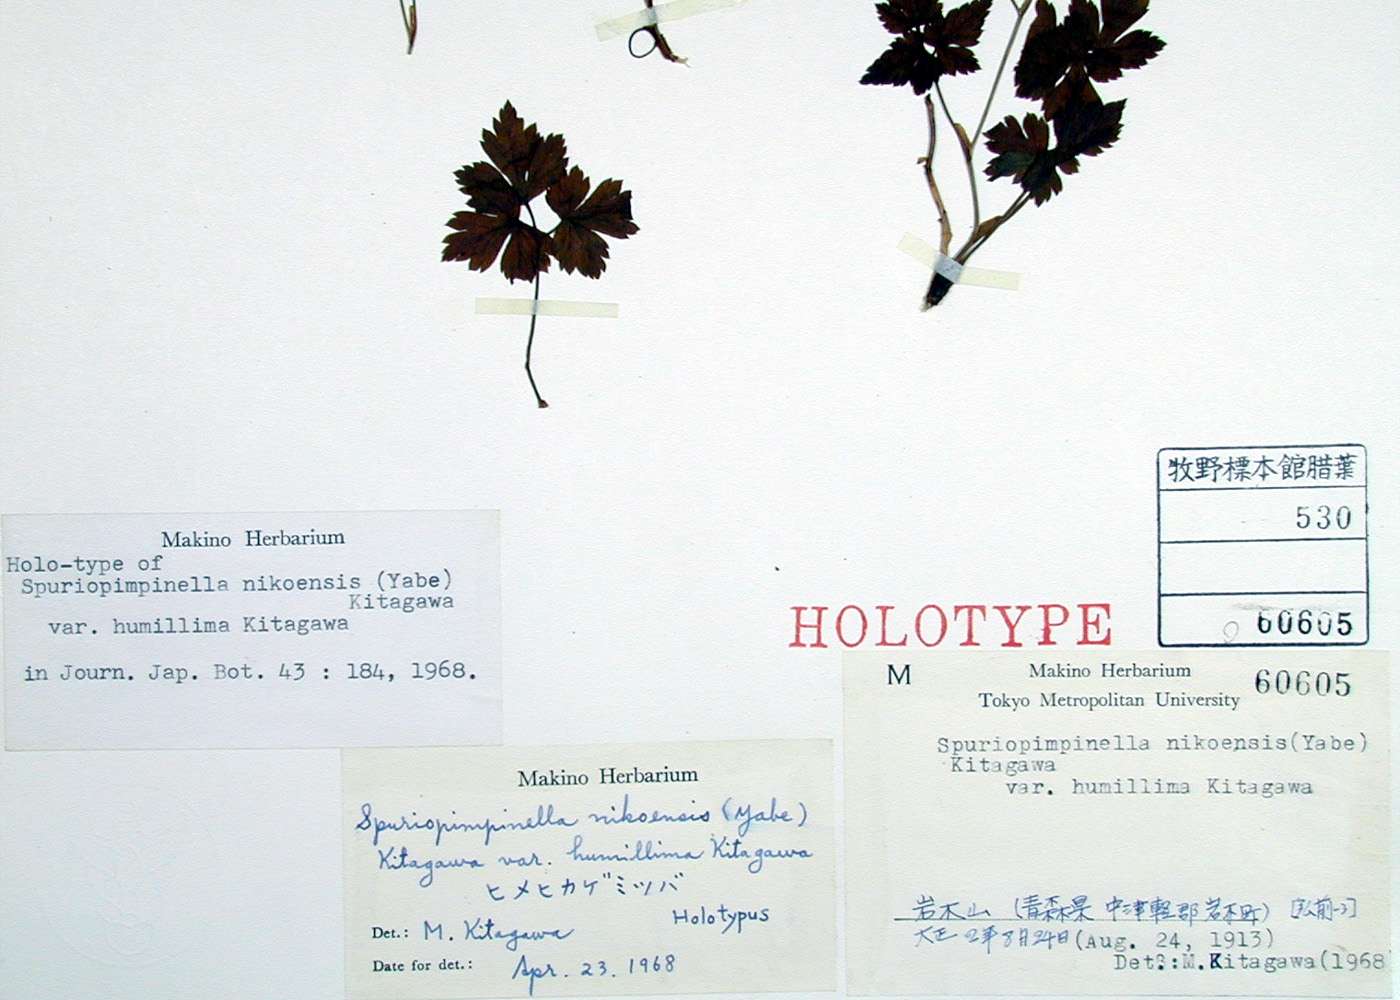 牧野標本館腊葉
530
60605
HOLOTYPE
Makino Herbarium
Holo-type of
Spuriopimpinella nikoensis (Yabe)
Kitagawa
var. humillima Kitagawa
in Journ. Jap. Bot. 43 : 184, 1968.
Makino Herbarium
Spuriopimpinella nikoensis (Yabe)
Kitagawa var. humillima Kitagawa
ヒメヒカゲミツバ
Holotypus
Det.: M. Kitagawa
Date for det.: Apr. 23. 1968
M
Makino Herbarium
60605
Tokyo Metropolitan University
Spuriopimpinella nikoensis(Yabe)
Kitagawa
var. humillima Kitagawa
岩木山 (青森県 中津軽郡 岩木町) [弘前-3]
大正2年8月24日(Aug. 24, 1913)
Det.:M.Kitagawa(1968